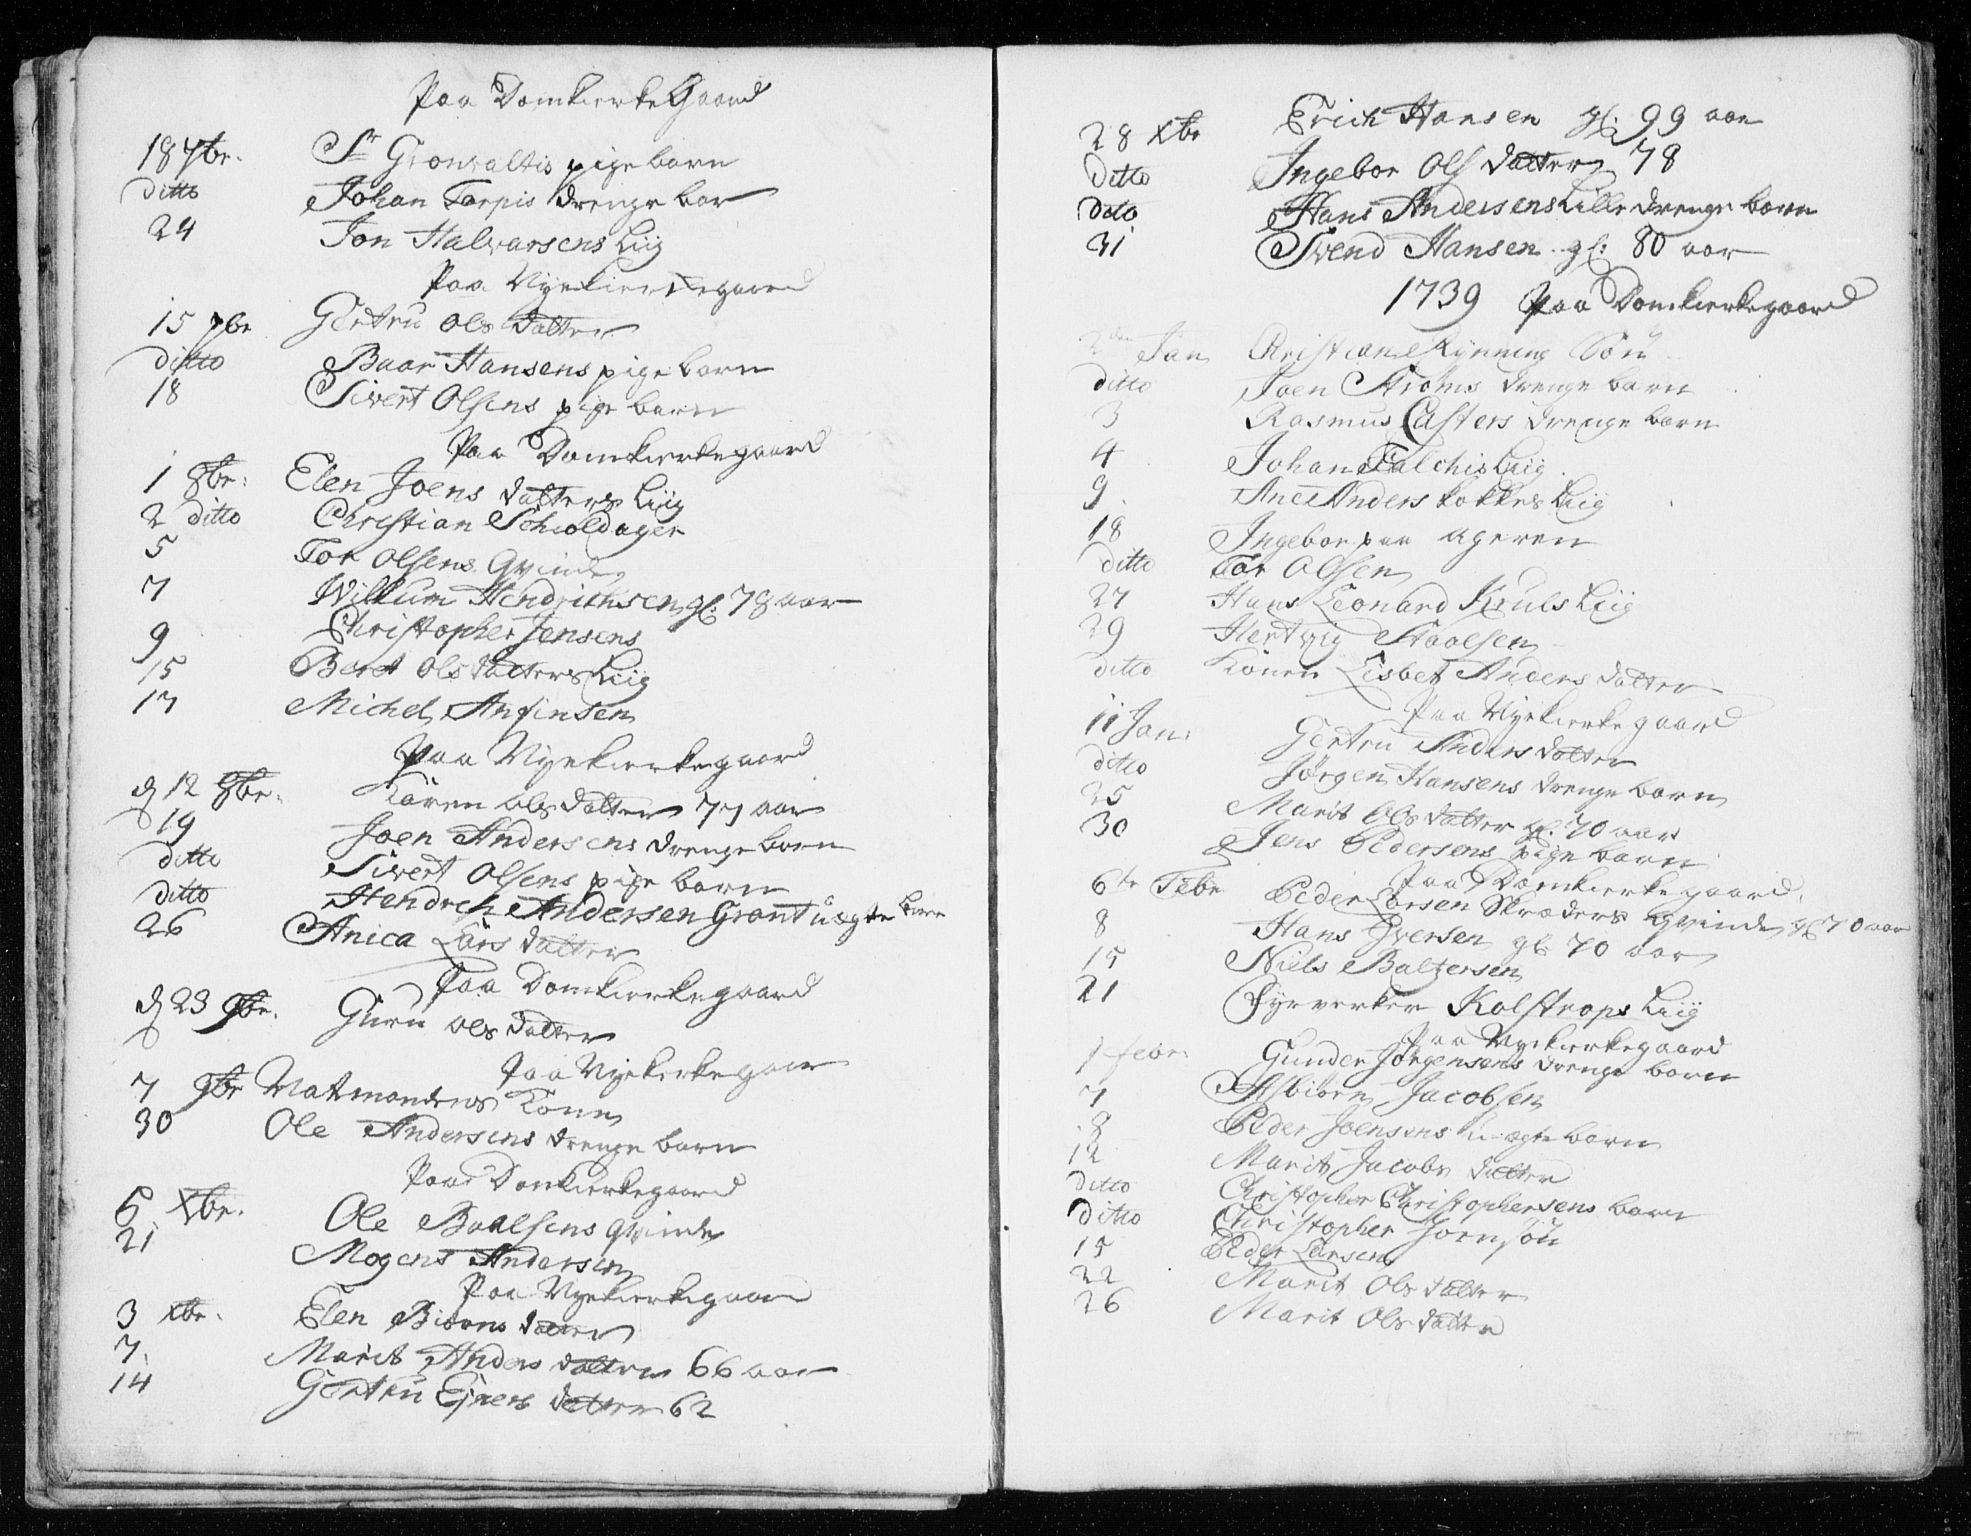 Paa Domkierke Gaard
18 7br. Sr Gronvaltis pige barn
ditto Johan Torpis drenge bar
24 Jon Halvarsens Liig
Paa Nyekierkegaard
15 7br Giertru Ols datter
ditto Baar Hansens pige barn
18 Sivert Olsens pige barn
Paa Domkierkegaard
1 8br: Elen Joens datters Liig
2 ditto Christian Schioldager
5 Tor Olsens Qvinde
7 Willum Hendrichsen gl: 78 aar
9 Christopher Jensens
15 Beret Ols datters Liig
17 Michel Anfinsen
Paa Nyekierkegaard
d 12 8br. Karen Ols datter 77 aar
19 Joen Andersens drenge barn
ditto Sivert Olsens pige barn
ditto Hendrch Andersen Grant uægte barn
26 Anica Lars datter
Paa Domkierkegaard
d 23 9br. Guru Ols datter
Paa Nyekirkegaar
7 9br Natmandens Kone
30 Ole Andersens drenge barn
Paa Domkierkegaard
5 Xbr. Ole Baalsens qvinde
21 Mogens Andersen
Paa Nyekierkegaar
3 xbr. Elen Biørns datter
7. Marit Anders datter 66 aar
14 Giertru Ejners datter 62
28 Xbr Erich Hansen gl: 99 aar
Ditto Ingebor Ols datter 78
dito Hans Andersens Lille drenge barn
31 Svend Hansen gl: 80 aar
1739 Paa Domkierkegaard
2den Jan Christian Rynning Søn
ditto Joen Strøms drenge barn
3 Rasmus Casters drenge barn
4 Johan Falchis Liig
9. Ane Anders kokkes Liig
18 Ingebor paa ageren
ditto Tor Olsen
27 Hans Leonard Kruls Liig
29 Hertvig Staalsen
ditto Konen Lisbet Anders datter
Paa Nyekierkegaard
11 Jan: Giertru Anders datter
ditto Jørgen Hansens drenge barn
25 Marit Ols datter gl. 70 aar
30 Jens Pedersens pige barn
Paa Domkierkegaard.
6te Febr Peder Larsen Skræders qvinde gl 70 aar
8 Hans Iversen gl 70 aar
15 Niels Baltzersen
21 Fyrverker Kolstrops Liig
Paa Nyekierkegaard
1 febr: Gunder Jørgensens drenge barn
7 Asbiørn Jacobsen
8 Peder Joensens u-ægte barn
12 Marit Jacobs datter
ditto Christopher Christophersens barn
ditto Christopher Jornsøn
15 Peder Larsen
22 Marit Ols datter
26 Marit Ols datter